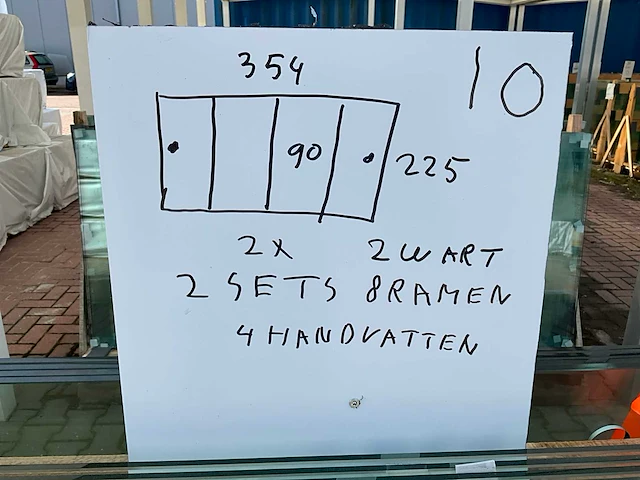 354
10
90
225
2X ZWART
2 SETS 8RAMEN
4 HANDVATTEN